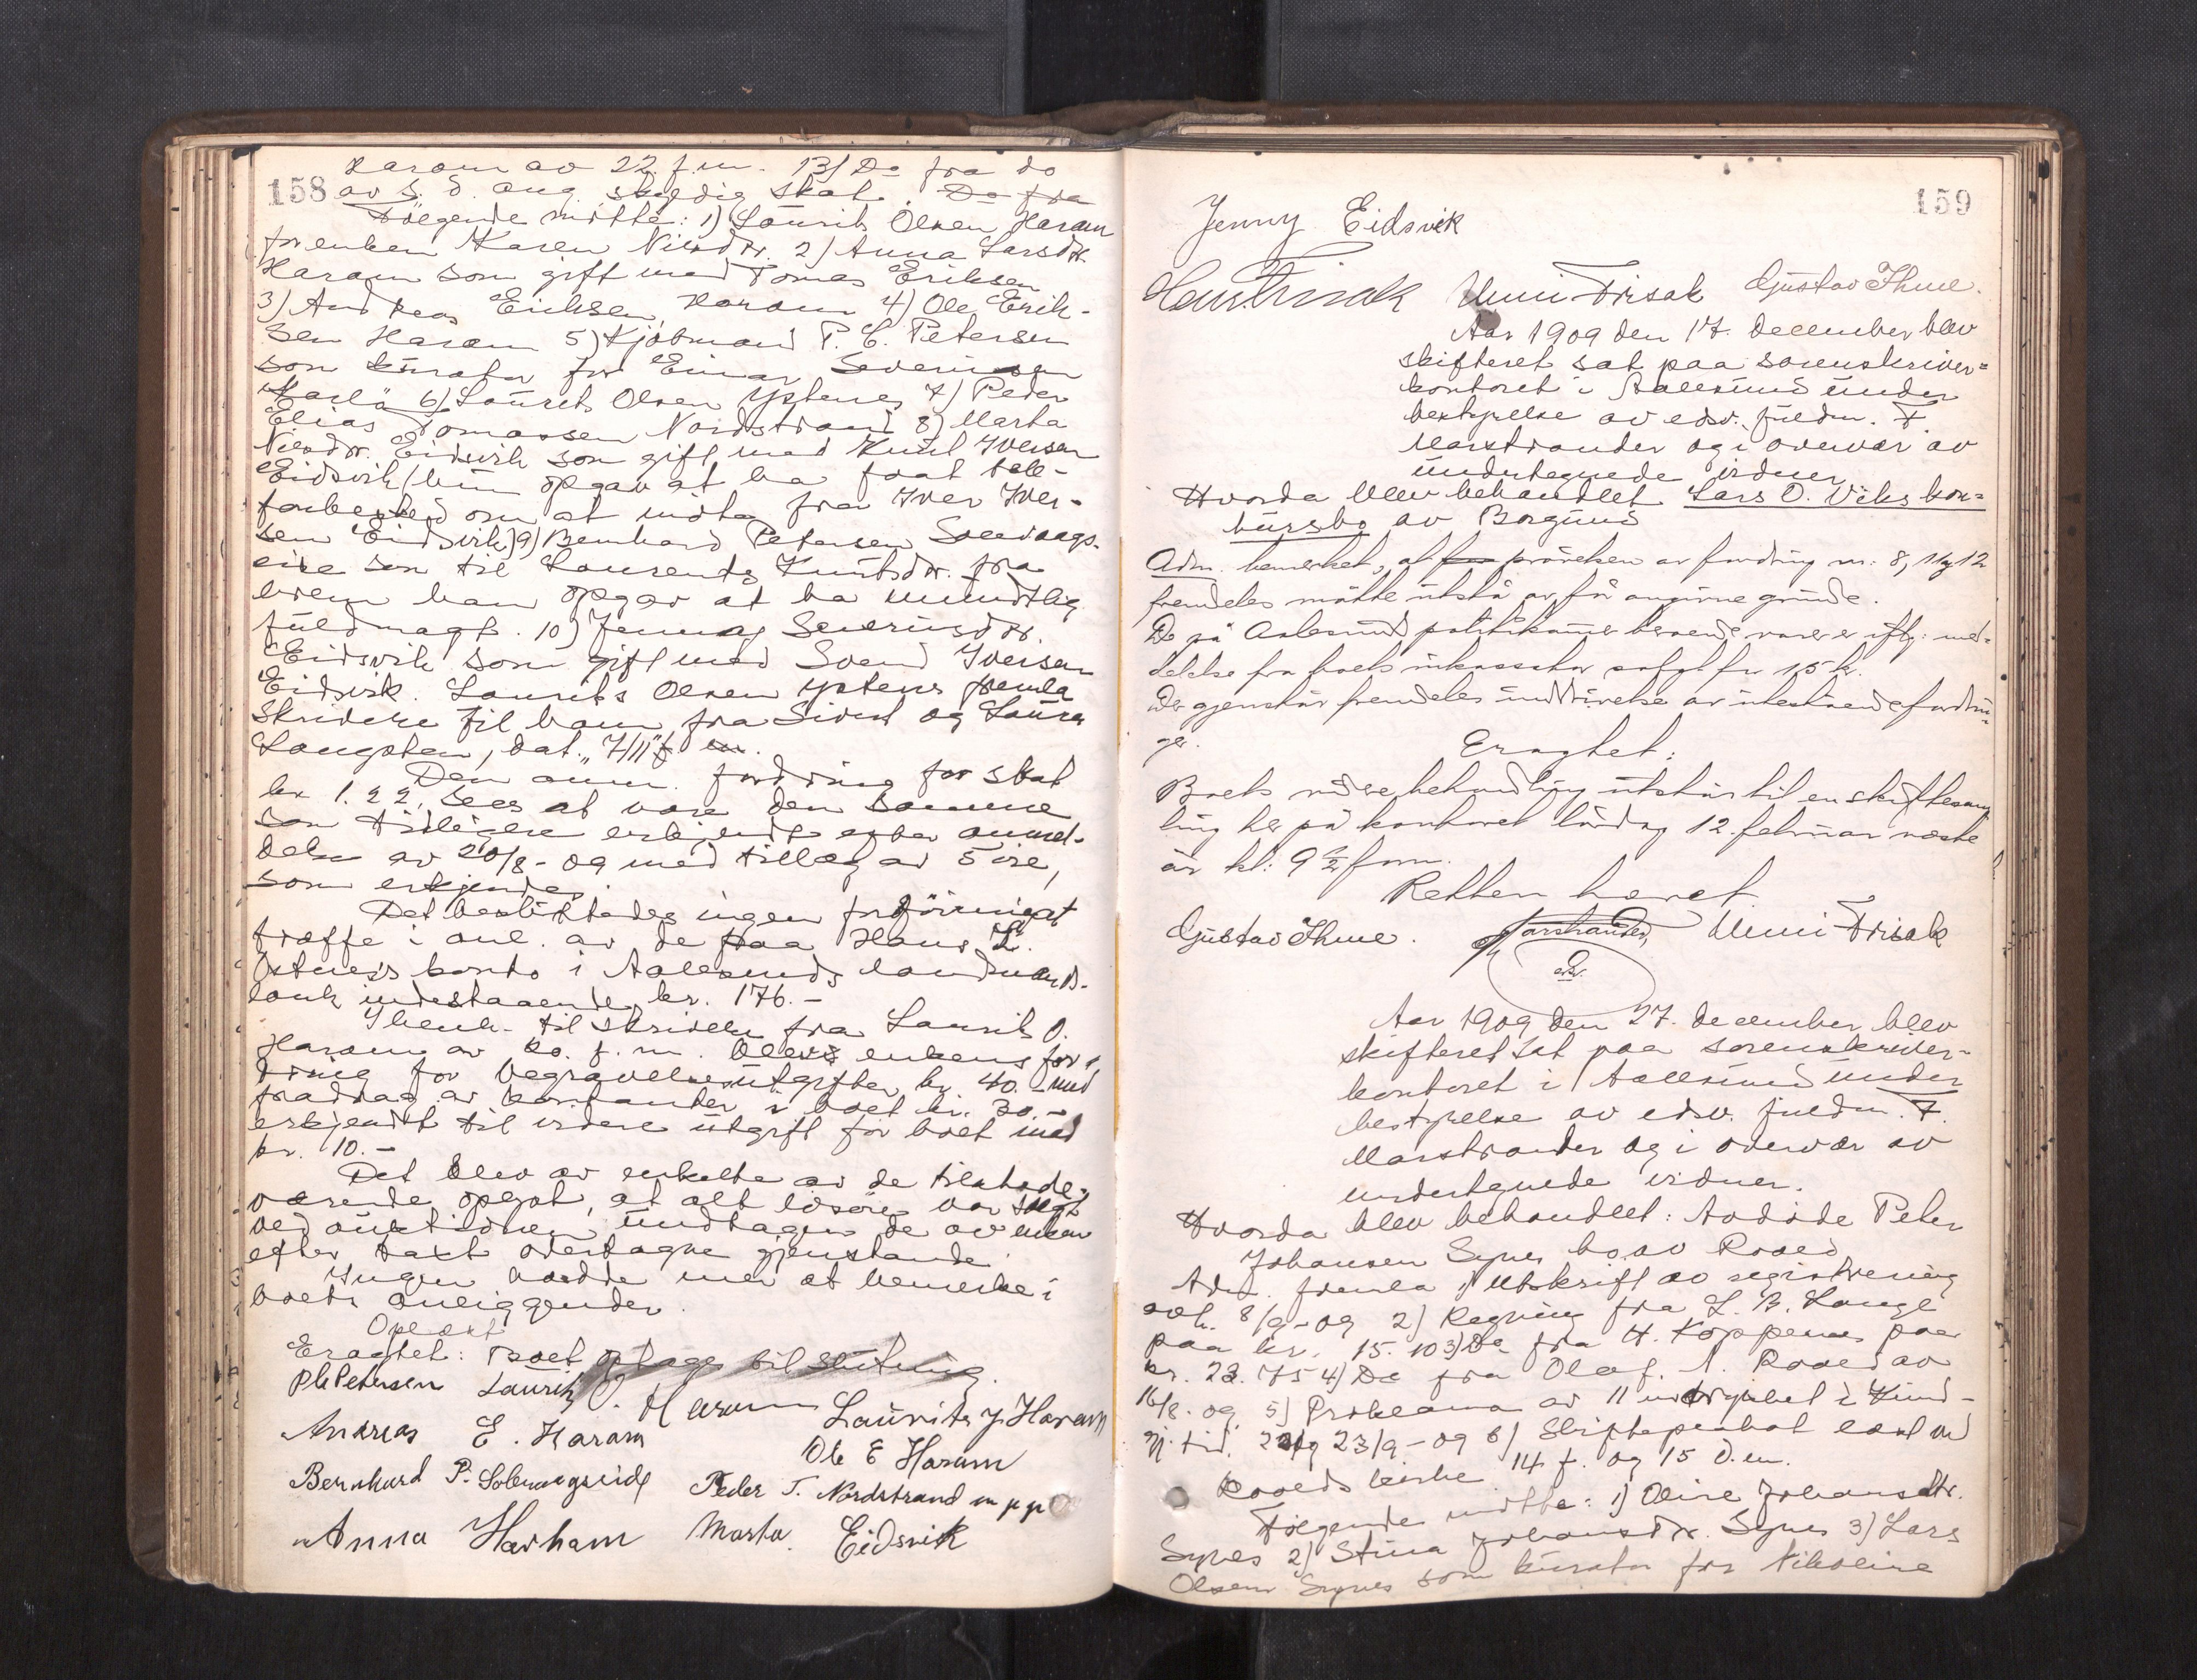 158
Haram av 22. f.m. 13) Do fra do
av s. d. ang. skyldig skat. Do fra
Følgende mötte: 1) Laurits Olsen Haram
for enken Karen Nilsdtr. 2) Anna Larsdtr.
Haram som gift med Tomas Eriksen
3) Andreas Eriksen Haram 4) Ole Erik-
sen Haram 5) Kjöbmand P. C. Petersen
som kurator for Einar Severinsen
6) Laurits Olsen Ystenes 7) Peder
Elias Tomassen Nordstrand 8) Marta
Nilsdtr. Eidsvik som gift med Knut Iversen
Eidsvik (hun opgav at ha faat tele-
fonbesked om at möta fra Iver Iver-
sen Eidsvik) 9) Bernhard Petersen Solevaags-
eide son til Laurentse Knutsdtr. fra
hvem han opgav at ha mundtlig
fuldmagt. 10) Jenny Severinsdtr.
Eidsvik som gift med Svend Iversen
Eidsvik. Laurits Olsen Ystenes fremla
skrivelse til ham fra Sivert og Laura
Longsten, dat. 7/11 f.
Den anm. fordring for skat
kr 1.22, sees at være den samme
som tidligere erkjendt efter anmel-
delse av 20/8-09 med tillæg av 5 øre,
som erkjendes.
Det besluttedes ingen forföininger at
træffe i anl. av de paa Hans L.
Östnes konto i Aalesunds landmands-
bank indestaaende kr. 176.-
I henh. til skrivelse fra Laurits O.
Haram av 20. f. m. blev enkens for-
dring for begravelsesutgifter kr. 40.- med
fradrag av kontanter i boet kr. 30.-
erkjendt til videre utgift for boet med
kr. 10.-
Det blev av enkelte av de tilstede-
værende oplyst, at alt lösöre var solgt
ved auktionen undtagen de av enken
efter taxt overtagne gjenstande
Ingen hadde mer at bemerke i
boets anliggender.
Oplæst
Eragtet: Boet optages til slutning.
P. C. Petersen Laurits O. Haram Laurits J. Haram
Andreas E. Haram Ole E Haram
Bernhard P. Solevaagseide Peder T. Nordstrand m p p
Anna Harham Marta Eidsvik
159
Jenny Eidsvik
Unni Frisak Gustav Thue.
Aar 1909 den 17. december blev
skifteret sat paa sorenskriver-
kontoret i Aalesund under
bestyrelse av edsv. fuldm. F.
Marstrander og i overvær av
undertegnede vidner
Hvorda blev behandlet Lars O. Viks kon-
kursbo av Borgund
Adm. bemerket, at prövelsen av fordring nr. 8, 11 og 12
fremdeles måtte utstå av för angivne grunde.
De på Aalesund politikammer beroende varer er iflg: med-
delelse fra boets inkassator solgt for 15 kr.
Der gjenstår fremdeles inddrivelse av utestående fordrin-
ger.
Eragtet:
Boets videre behandling utstår til en skiftesam-
ling her på kontoret lördag 12. februar næste
år kl: 9 1/2 form.
Retten hævet.
Gustav Thue. F. Marstrander, Unni Frisak
edsv.
Aar 1909 den 27. december blev
skifteret sat paa sorenskriver-
kontoret i Aalesund under
bestyrelse av edsv. fuldm. F.
Marstrander og i overvær av
undertegnede vidner.
Hvorda blev behandlet: Avdöde Peter
Johansen Synes bo av Roald
Adm. fremla 1) Utskrift av registrering
avh. 8/9-09 2) Regning fra L. B. Lange
paa kr. 15.10 3) Do fra H. Koppernæs paa
kr. 23.75 4) Do fra Olaf A. Roald av
16/8-09 5) Proklama av 11 indrykket i Kund-
gj. tid. 22 og 23/9-09 6) Skifteplakat læst ved
Roalds kirke 14 f. og 15 d.m.
Følgende mötte: 1) Oline Johansdtr.
Synes 2) Stina Johansdtr. Synes 3) Lars
Olsen Synes som kurator for Nikoline